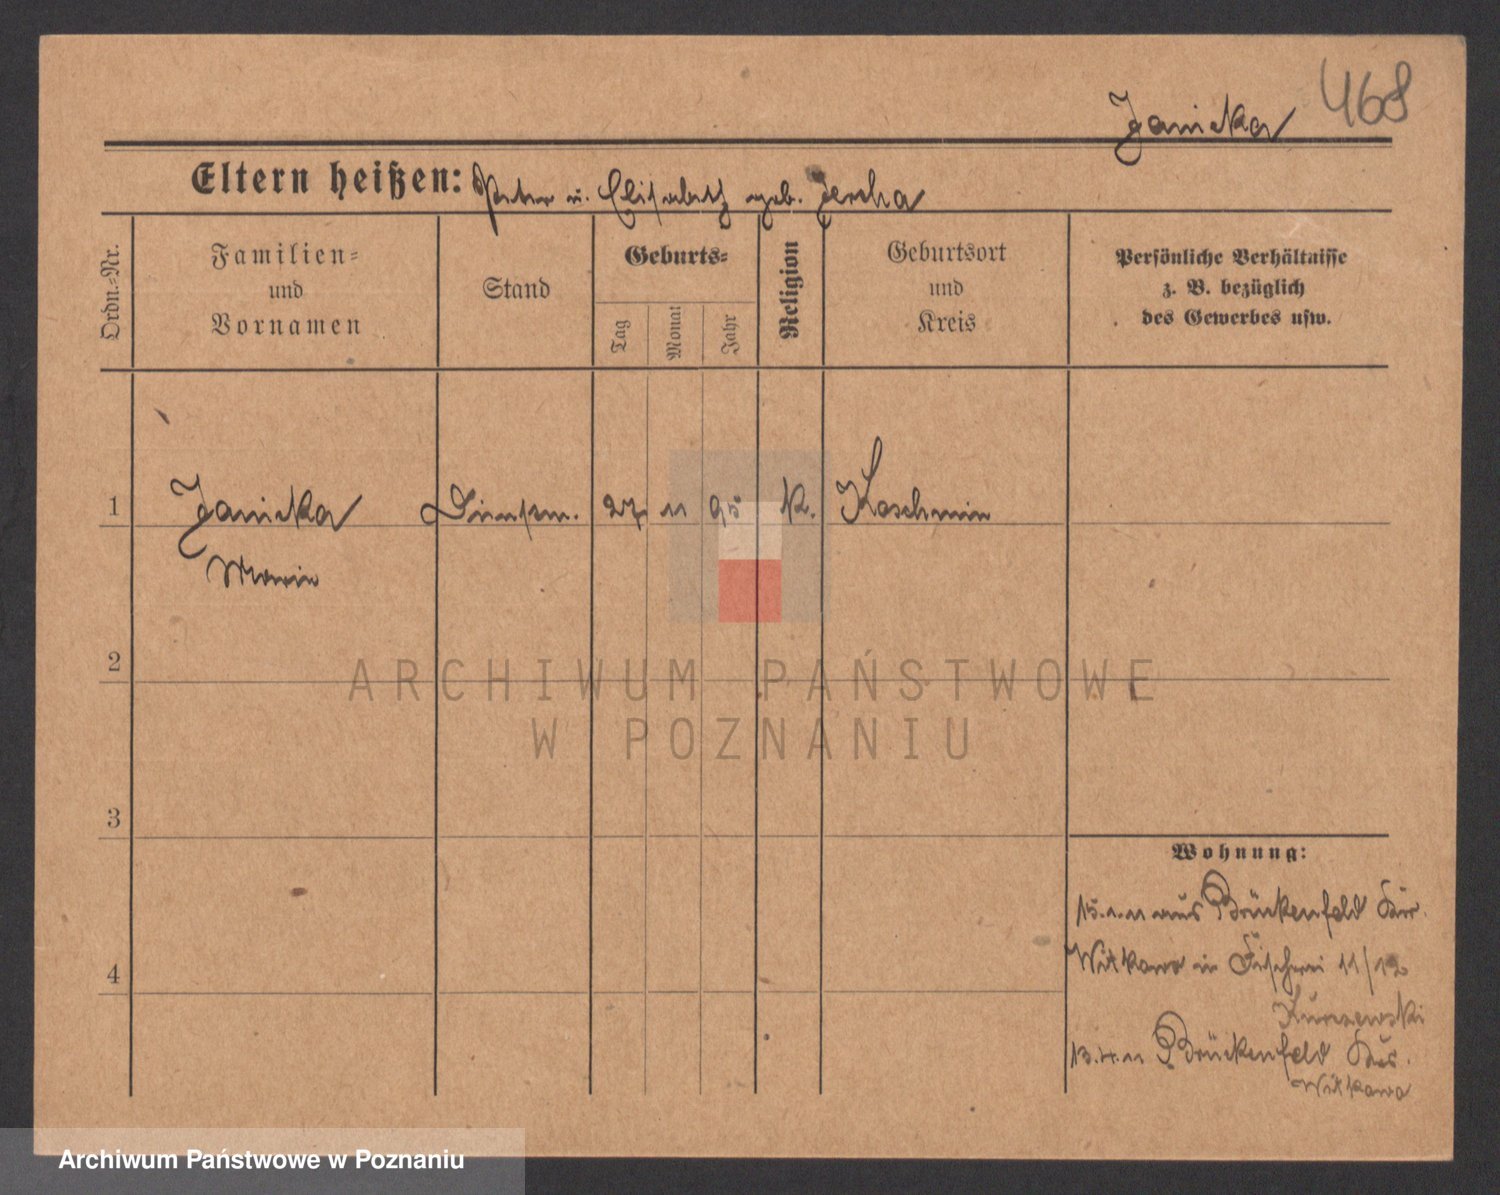 468
Janicka
Eltern heißen: Peter u. Elisabeth geb. Jercha
Ordn.-Nr.
Familien-
und
Vornamen
Stand
Geburts-
Tag
Monat
Jahr
Religion
Geburtsort
und
Kreis
Persönliche Verhältnisse
z. B. bezüglich
des Gewerbes usw.
1 Janicka Dienstm. 27. 11 95 k. Koschmin
Marie
2
3
4
Wohnung:
15.1.11 aus Brückenfeld Kr.
Witkowo in Fischerei 11/12
13.4.11 Brückenfeld Krs.
Witkowo
ARCHIWUM PAŃSTWOWE
W POZNANIU
Archiwum Państwowe w Poznaniu